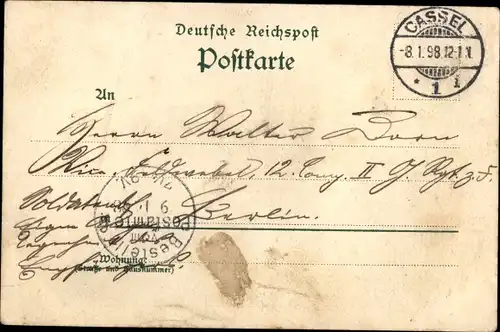 Deutsche Reichspost
Postkarte
CASSEL
-8.1.98.12-1N.
* 1 i
An
Herrn Walter Dorn
Vice Feldwebel, 12. Comp. II G. Rgt. z. F.
Soldatenbr.
Berlin.
Eigen
Bestellt
Postamte
9 1
Wohnung:
(Straße und Hausnummer)